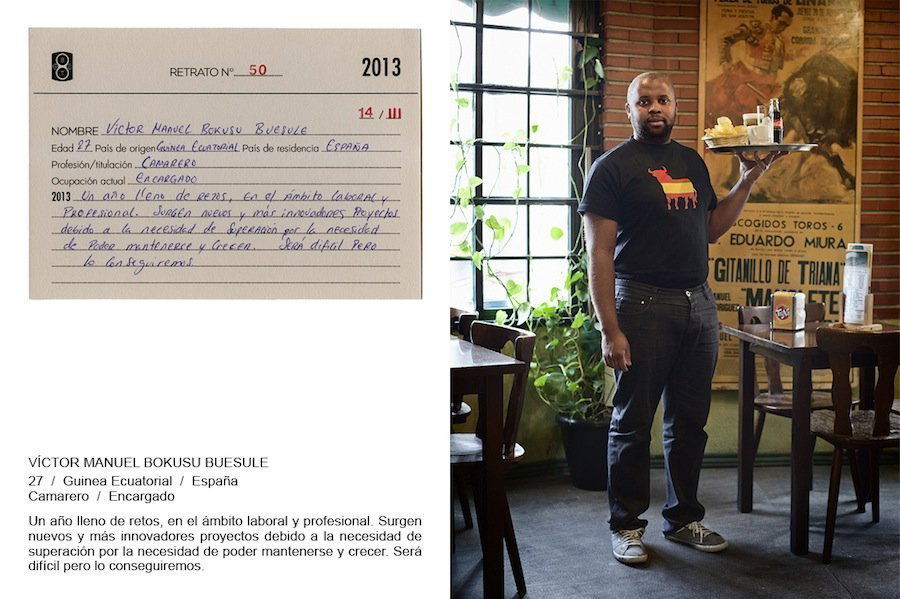 RETRATO Nº 50 2013
14 / III
NOMBRE Víctor Manuel Bokusu Buesule
Edad 27 País de origen Guinea Ecuatorial País de residencia España
Profesión/titulación Camarero
Ocupación actual Encargado
2013 Un año lleno de retos, en el ámbito laboral y
Profesional. Surgen nuevos y más innovadores Proyectos
debido a la necesidad de Superación por la necesidad
de Poder mantenerce y Crecer. Será dificil Pero
lo Conseguiremos.
VÍCTOR MANUEL BOKUSU BUESULE
27 / Guinea Ecuatorial / España
Camarero / Encargado
Un año lleno de retos, en el ámbito laboral y profesional. Surgen
nuevos y más innovadores proyectos debido a la necesidad de
superación por la necesidad de poder mantenerse y crecer. Será
difícil pero lo conseguiremos.
LINARES
CORRIDA
ESCOGIDOS TOROS - 6
EDUARDO MIURA
"GITANILLO DE TRIANA"
MANUEL